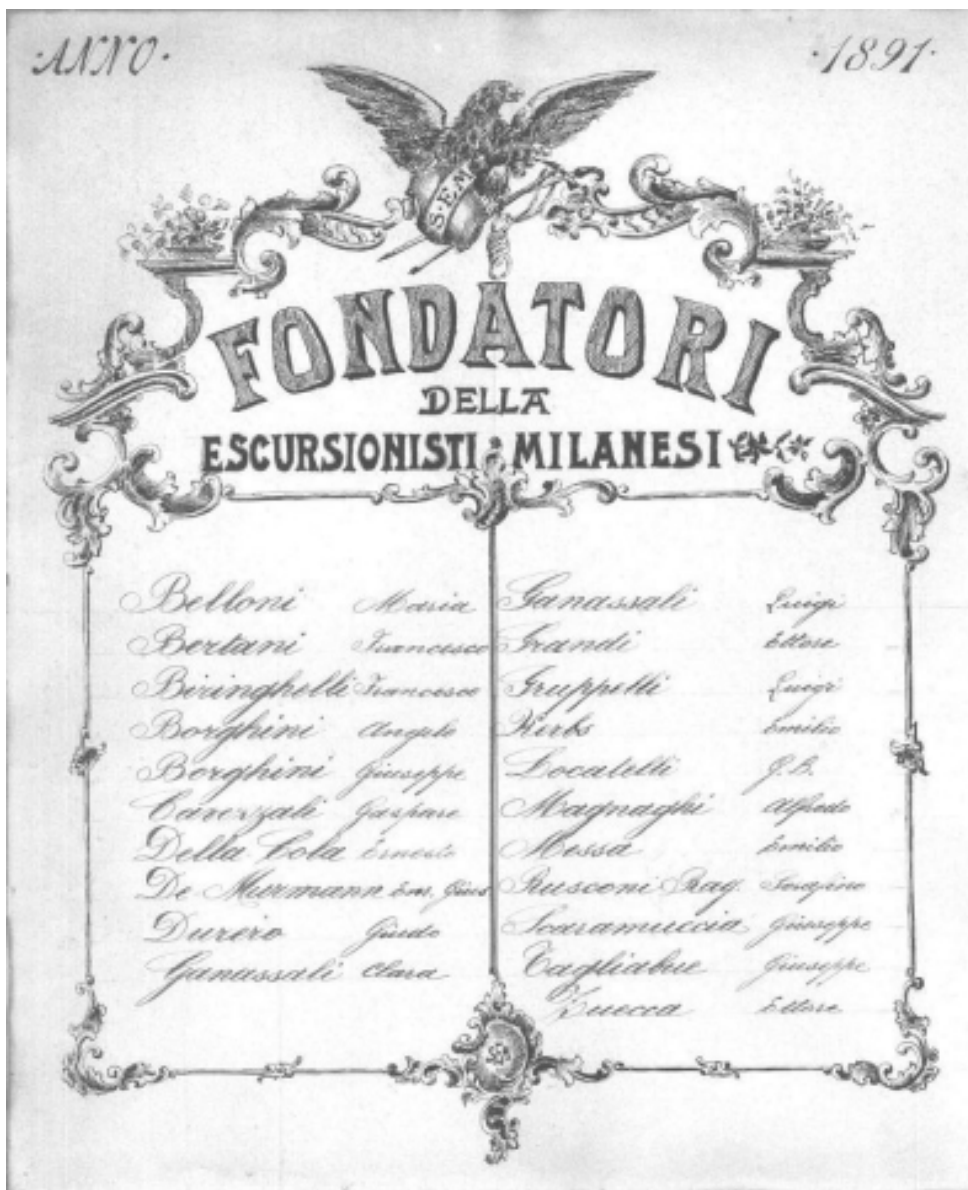 ·ANNO·
·1891·
S.E.M
FONDATORI
DELLA
ESCURSIONISTI MILANESI
Belloni Maria
Bertani Francesco
Biringhelli Francesco
Borghini Angelo
Borghini Giuseppe
Carezzali Gaspare
Della Cola Ernesto
De Murmann Em. Gius
Durero Guido
Ganassali Clara
Ganassali Luigi
Grandi Ettore
Gruppelli Luigi
Kerbs Emilio
Locatelli G.B.
Magnaghi Alfredo
Messa Emilio
Rusconi Rag. Serafino
Scaramuccia Giuseppe
Tagliabue Giuseppe
Zuecca Ettore